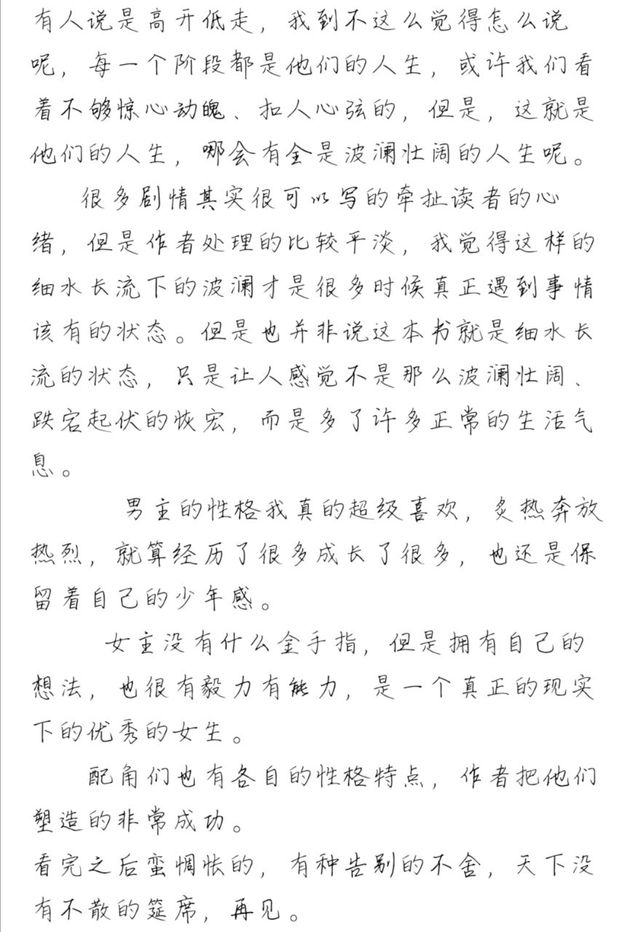 有人说是高开低走，我到不这么觉得怎么说
呢，每一个阶段都是他们的人生，或许我们看
着不够惊心动魄、扣人心弦的，但是，这就是
他们的人生，哪会有全是波澜壮阔的人生呢。
很多剧情其实很可以写的牵扯读者的心
绪，但是作者处理的比较平淡，我觉得这样的
细水长流下的波澜才是很多时候真正遇到事情
该有的状态。但是也并非说这本书就是细水长
流的状态，只是让人感觉不是那么波澜壮阔、
跌宕起伏的恢宏，而是多了许多正常的生活气
息。
男主的性格我真的超级喜欢，炙热奔放
热烈，就算经历了很多成长了很多，也还是保
留着自己的少年感。
女主没有什么金手指，但是拥有自己的
想法，也很有毅力有能力，是一个真正的现实
下的优秀的女生。
配角们也有各自的性格特点，作者把他们
塑造的非常成功。
看完之后蛮惆怅的，有种告别的不舍，天下没
有不散的筵席，再见。